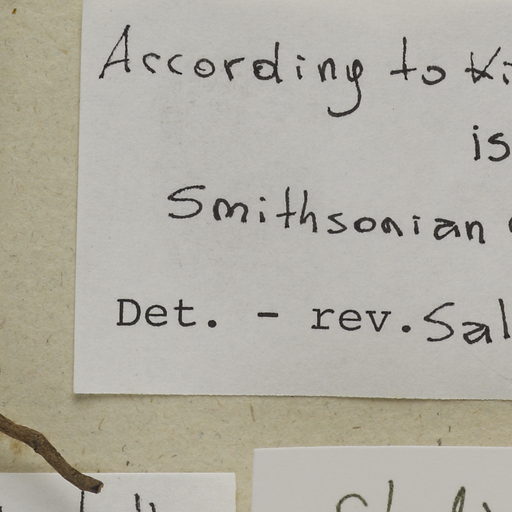 According to Ki
is
Smithsonian
Det. - rev. Sal